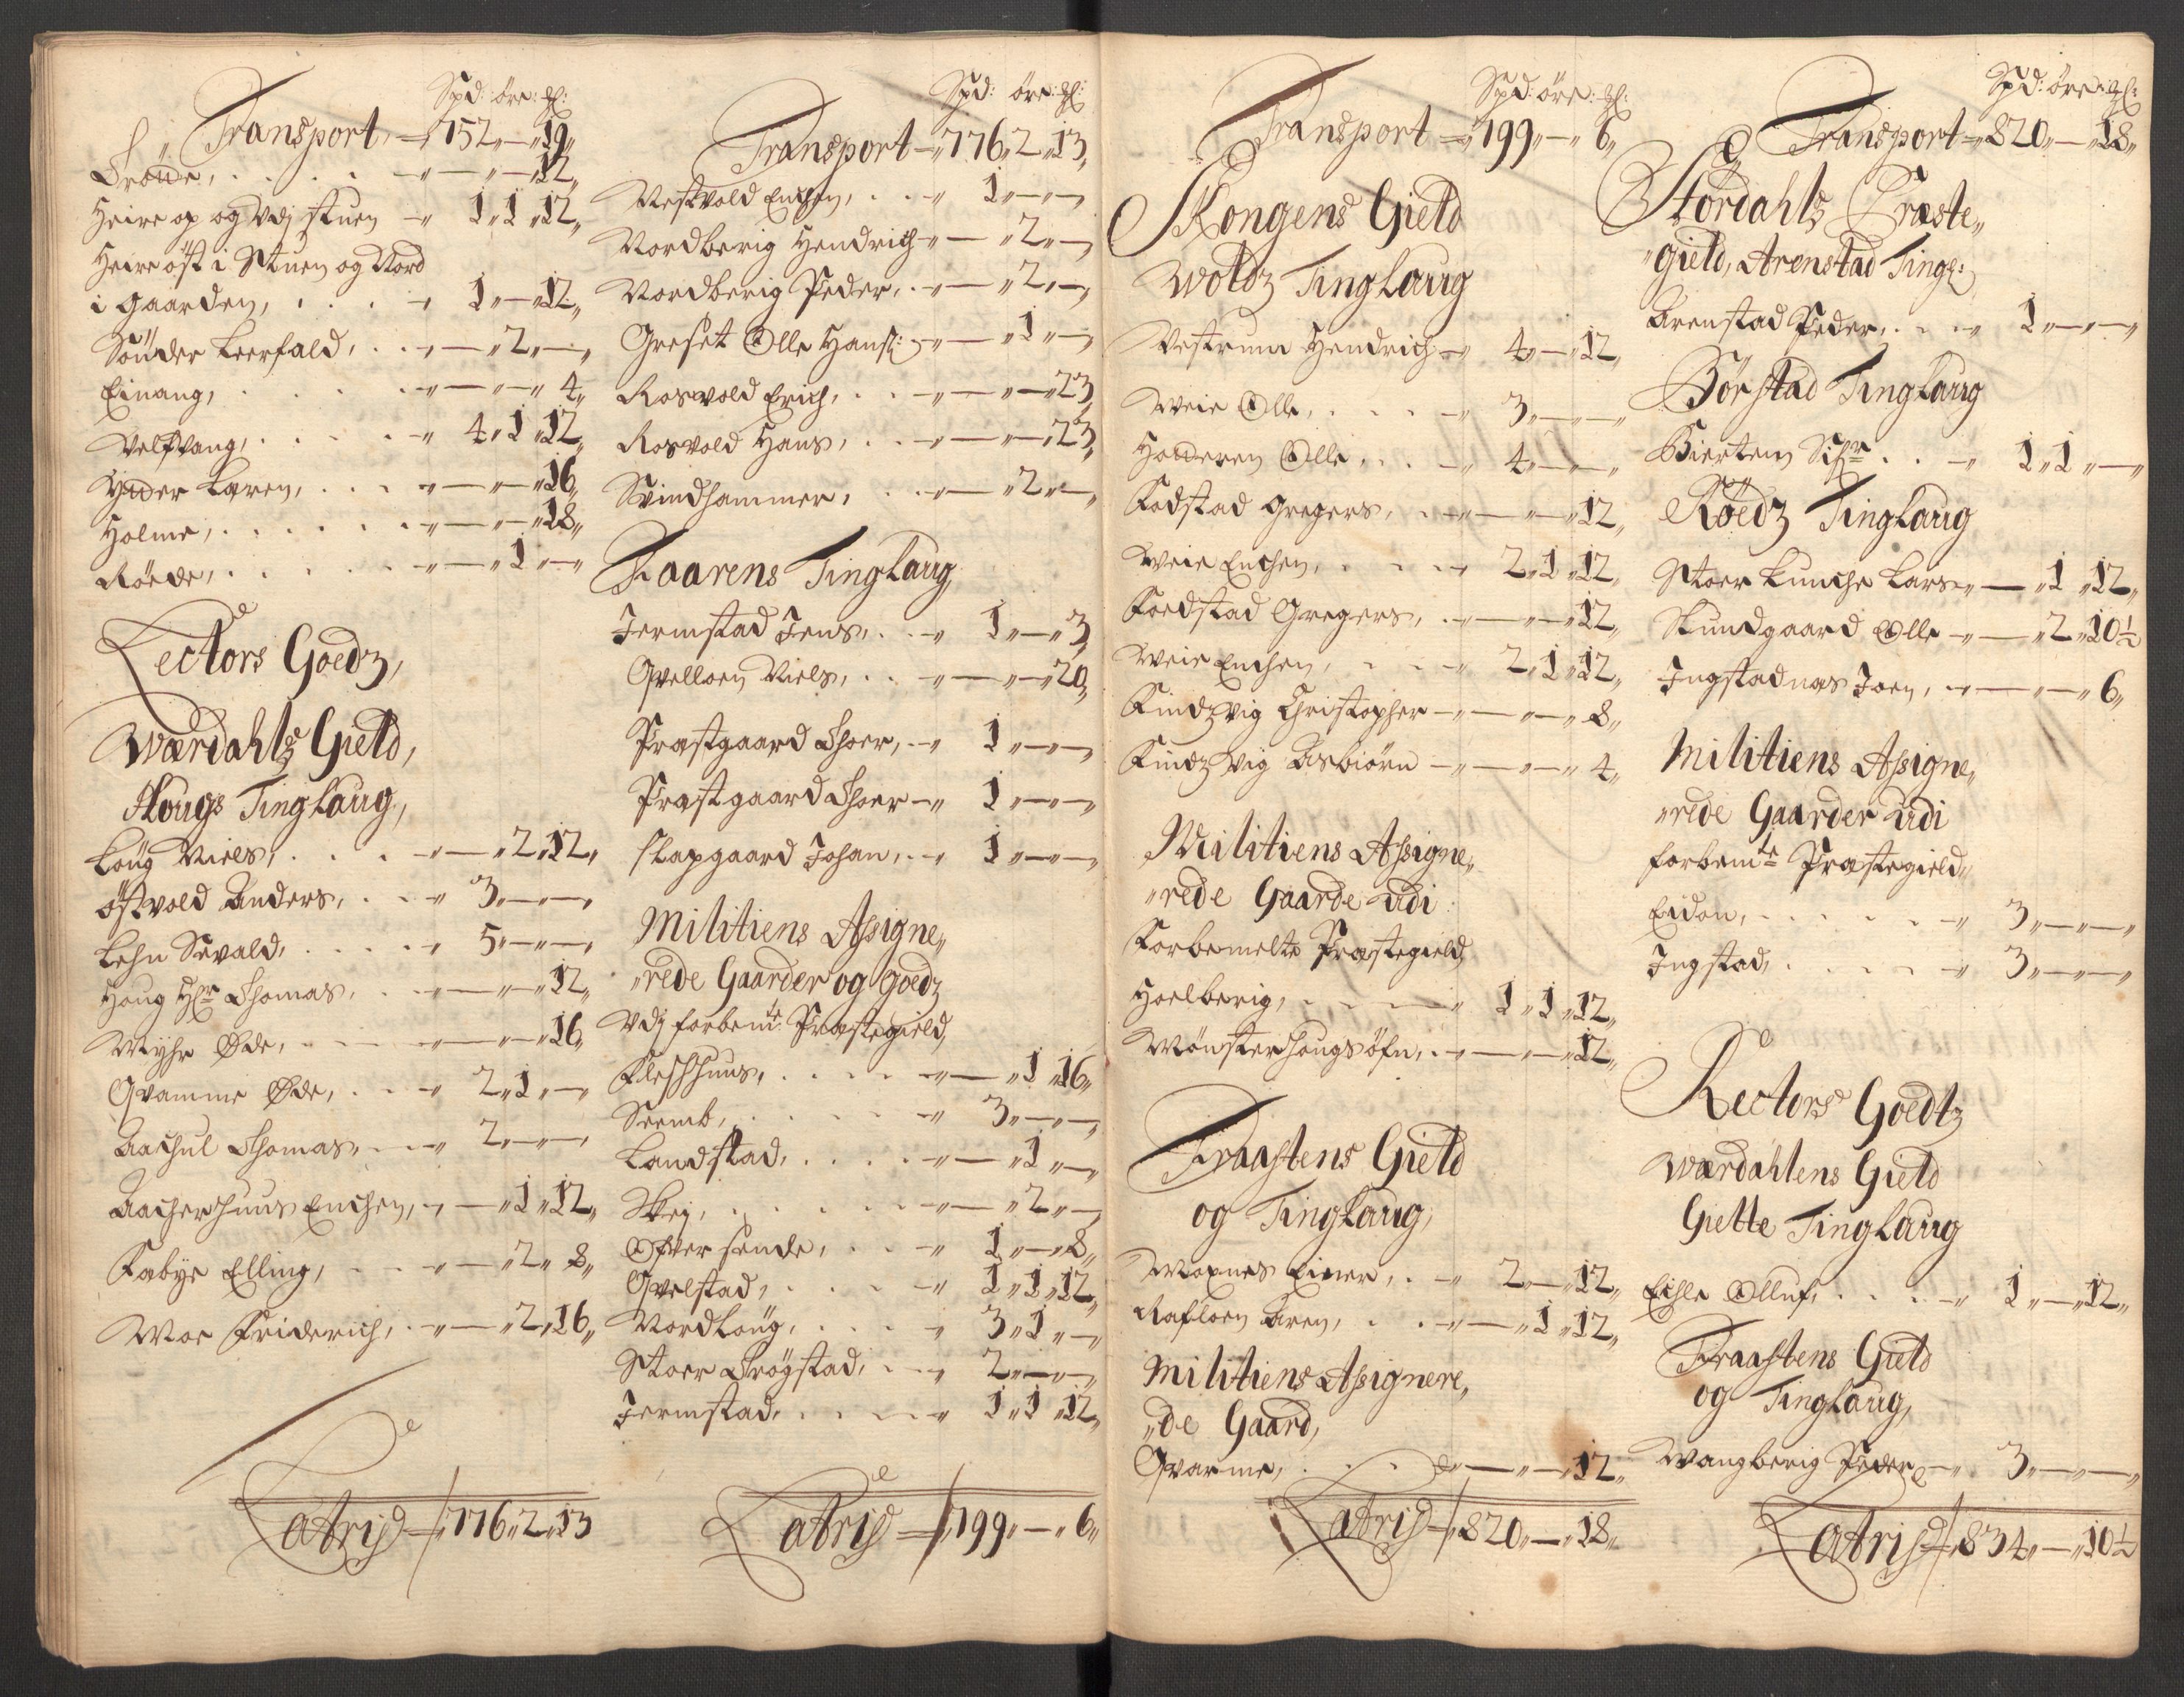 Spd: öre: gl:
Transport — 752 „ — „ 19 „
Skrove, . . . . — „ — „ 12 „
Heire op og udj stuen — 1 „ 1 „ 12 „
Heire öst i Stuen og Nord
i gaarden, . . . 1 „ — „ 12 „
Sönder Leerfald, . . — „ 2 „ — „
Einang, . . . — „ — „ 4 „
Melsvang, . . . 4 „ 1 „ 12 „
Karen, . . . — „ — „ 16 „
Holme, . . . . — „ — „ 18 „
Röede, . . . . — „ 1 „ — „
Lectors Goedz,
Wærdahls Gield,
Hougs Tinglaug,
Loug Niels, . . . — „ 2 „ 12 „
östvold Anders, . . 3 „ — „ — „
Lehn Sevald, . . . 5 „ — „ — „
Houg Hr Thomas, . . — „ — „ 12 „
Myhr Øde, . . . — „ — „ 16 „
Qvamme Øde, . . . 2 „ 1 „ — „
Thomas, . . 2 „ — „ — „
Aacherhuus Enchen, — „ 1 „ 12 „
Fabye Elling, . . — „ 2 „ 8 „
Moe Friderich, . — „ 2 „ 16 „
Latris — 776 „ 2 „ 13
Spd: öre: gl:
Transport — 776 „ 2 „ 13 „
Vestvold Enchen, . . 1 „ — „ — „
Nordberig Hendrich — „ 2 „ — „
Nordberig Peder, . — „ 2 „ — „
Greset Olle Hans: — „ 1 „ — „
Rosvold Erich, . . — „ — „ 23 „
Rosvold Hans, . . — „ — „ 23 „
Svindhammer, . . — „ 2 „ — „
Faarens Tinglaug,
Jermstad Jens, . . 1 „ — „ 3 „
Qvelloen Niels, . . — „ — „ 20 „
Præstgaard Thoer, . 1 „ — „ — „
Præstgaard Thoer — 1 „ — „ — „
Slapgaard Johan, . 1 „ — „ — „
Militiens Assigne„
„rede Gaarder og goedz
Udj forbemte Præstegield,
Fleshhuus, . . . — „ 1 „ 16 „
Seemb, . . . . 3 „ — „ — „
Landstad, . . . — „ 1 „ — „
Skej, . . . . — „ 2 „ — „
Ofver sende, . . 1 „ — „ 8 „
Qvelstad, . . . 1 „ 1 „ 12 „
Nordloug, . . . 3 „ 1 „ — „
Stoer Trögstad, . . 2 „ — „ — „
Jermstad, . . . 1 „ 1 „ 12 „
Latris — 799 „ — „ 6 „
Spd: öre: gl:
Transport — 799 „ — „ 6 „
Skongens Gield
Woldz Tinglaug
Vestrum Hendrich — 4 „ — „ 12 „
Meie Olle, . . . 3 „ — „ — „
Olle, . . . 4 „ — „ — „
Fodstad Gregers, . — „ — „ 12 „
Meie Enchen, . . . 2 „ 1 „ 12 „
Foedstad Gregers, . — „ — „ 12 „
Meie Enchen, . . . 2 „ 1 „ 12 „
Kindzvig Christopher — „ — „ 8 „
Kindzvig Asbiörn — „ — „ 4 „
Militiens Assigne„
„rede Gaarde udi
Forbemelte Præstegield,
Hoelberig, . . . 1 „ 1 „ 12 „
Mönsterhougsöfn, . — „ — „ 12 „
Fraastens Gield
og Tinglaug,
Moxnes Einer, . . 2 „ — „ 12 „
Rafloen Aren, . . — „ 1 „ 12 „
Militiens Assignere„
„de Gaard,
Qvarme, . . . — „ — „ 12 „
Latris — 820 „ — „ 18 „
Spd: öre: gl:
Transport — 820 „ — „ 18 „
Stordahls Præste„
„gield, Arenstad Tingl:
Arenstad Peder, . . 1 „ — „ — „
Börstad Tinglaug
Biertem . . 1 „ 1 „ — „
Röedz Tinglaug
Stoer Kunche Lars — „ 1 „ 12 „
Skundgaard Olle — „ 2 „ 10½
Ingstadnæs Joen, — „ — „ 6 „
Militiens Assigne„
„rede Gaarder udi
forbemte Præstegield„
Eidon, . . . . 3 „ — „ — „
Ingstad, . . . . 3 „ — „ — „
Rectors Goedtz
Wærdahlens Gield
Gielte Tinglaug
Eihle Olluf, . . . 1 „ — „ 12 „
Fraastens Gield
og Tinglaug,
Wangberig Peder, — 3 „ — „ — „
Latris — 834 „ — „ 10½